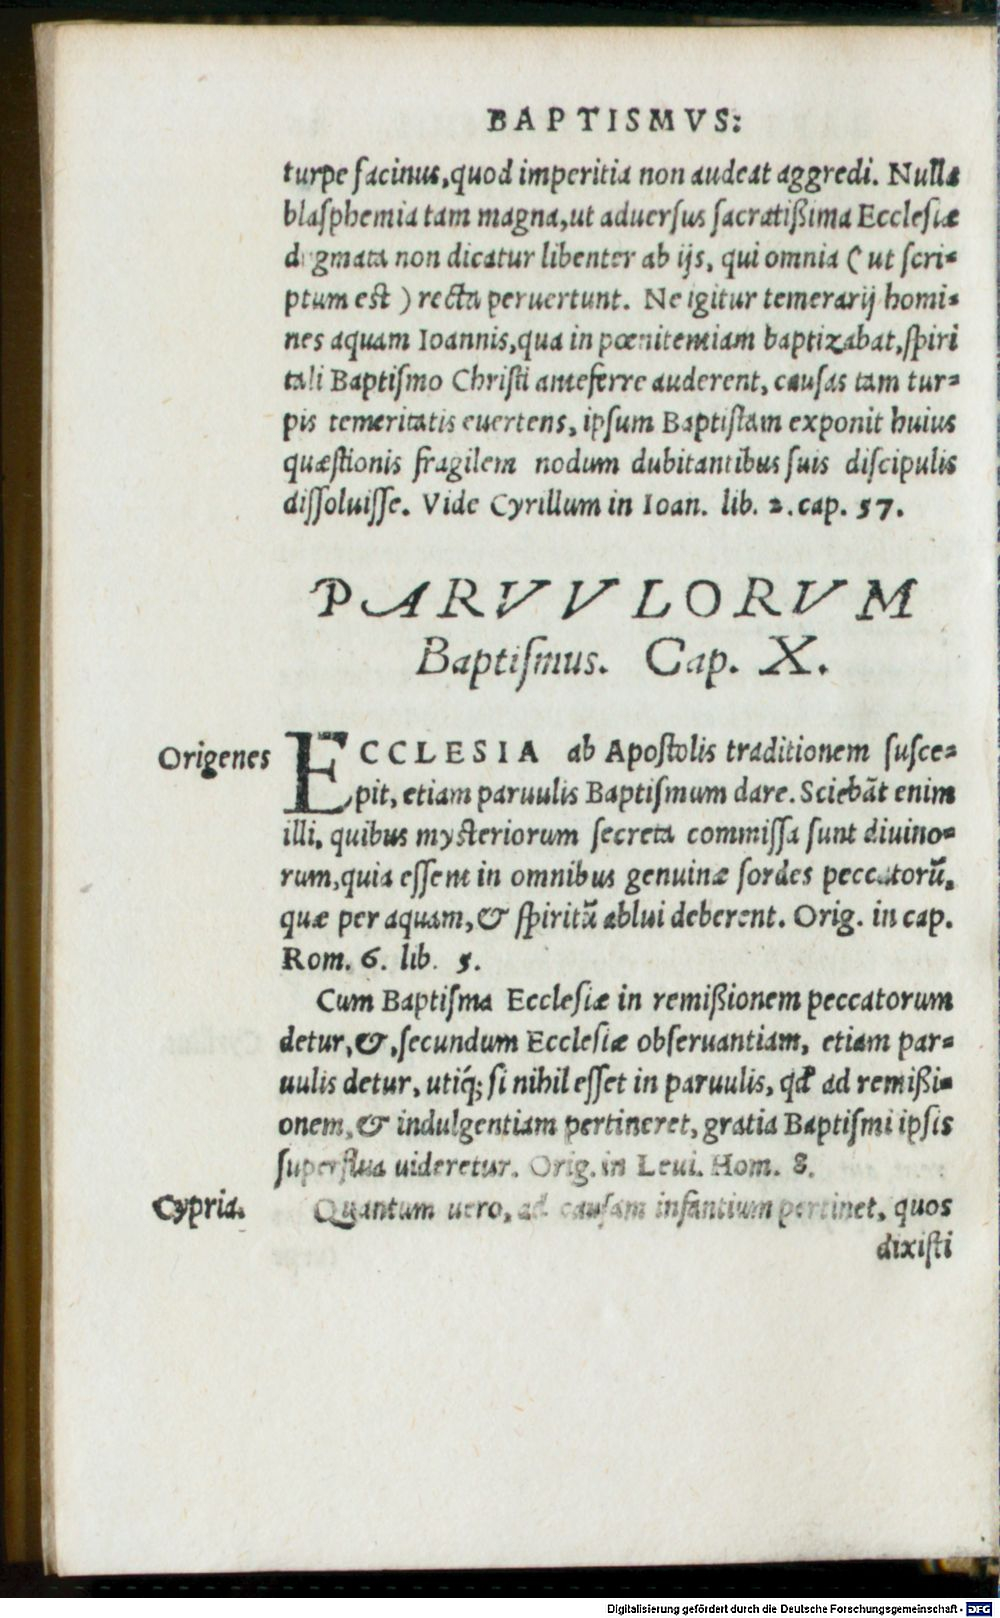 BAPTISMVS:
turpe facinus, quod imperitia non audeat aggredi. Nulla
blaſphemia tam magna, ut aduerſus ſacratißima Eccleſiæ
dogmata non dicatur libenter ab ijs, qui omnia ( ut ſcri-
ptum eſt ) recta peruertunt. Ne igitur temerarij homi-
nes aquam Ioannis, qua in pœnitentiam baptizabat, ſpiri
tali Baptiſmo Chriſti anteferre auderent, cauſas tam tur-
pis temeritatis euertens, ipſum Baptiſtam exponit huius
quæſtionis fragilem nodum dubitantibus ſuis diſcipulis
diſſoluiſſe. Vide Cyrillum in Ioan. lib. 2. cap. 57.
PARVVLORVM
Baptiſmus. Cap. X.
Origenes
ECCLESIA ab Apoſtolis traditionem ſuſce-
pit, etiam paruulis Baptiſmum dare. Sciebāt enim
illi, quibus myſteriorum ſecreta commiſſa ſunt diuino-
rum, quia eſſent in omnibus genuinæ ſordes peccatorū,
quæ per aquam, & ſpiritū ablui deberent. Orig. in cap.
Rom. 6. lib. 5.
Cum Baptiſma Eccleſiæ in remißionem peccatorum
detur, &, ſecundum Eccleſiæ obſeruantiam, etiam par-
uulis detur, utiq́; ſi nihil eſſet in paruulis, qd̓ ad remißi-
onem, & indulgentiam pertineret, gratia Baptiſmi ipſis
ſuperflua uideretur. Orig. in Leui. Hom. 8.
Cypria.
Quantum uero, ad cauſam infantium pertinet, quos
dixiſti
Digitalisierung gefördert durch die Deutsche Forschungsgemeinschaft - DFG